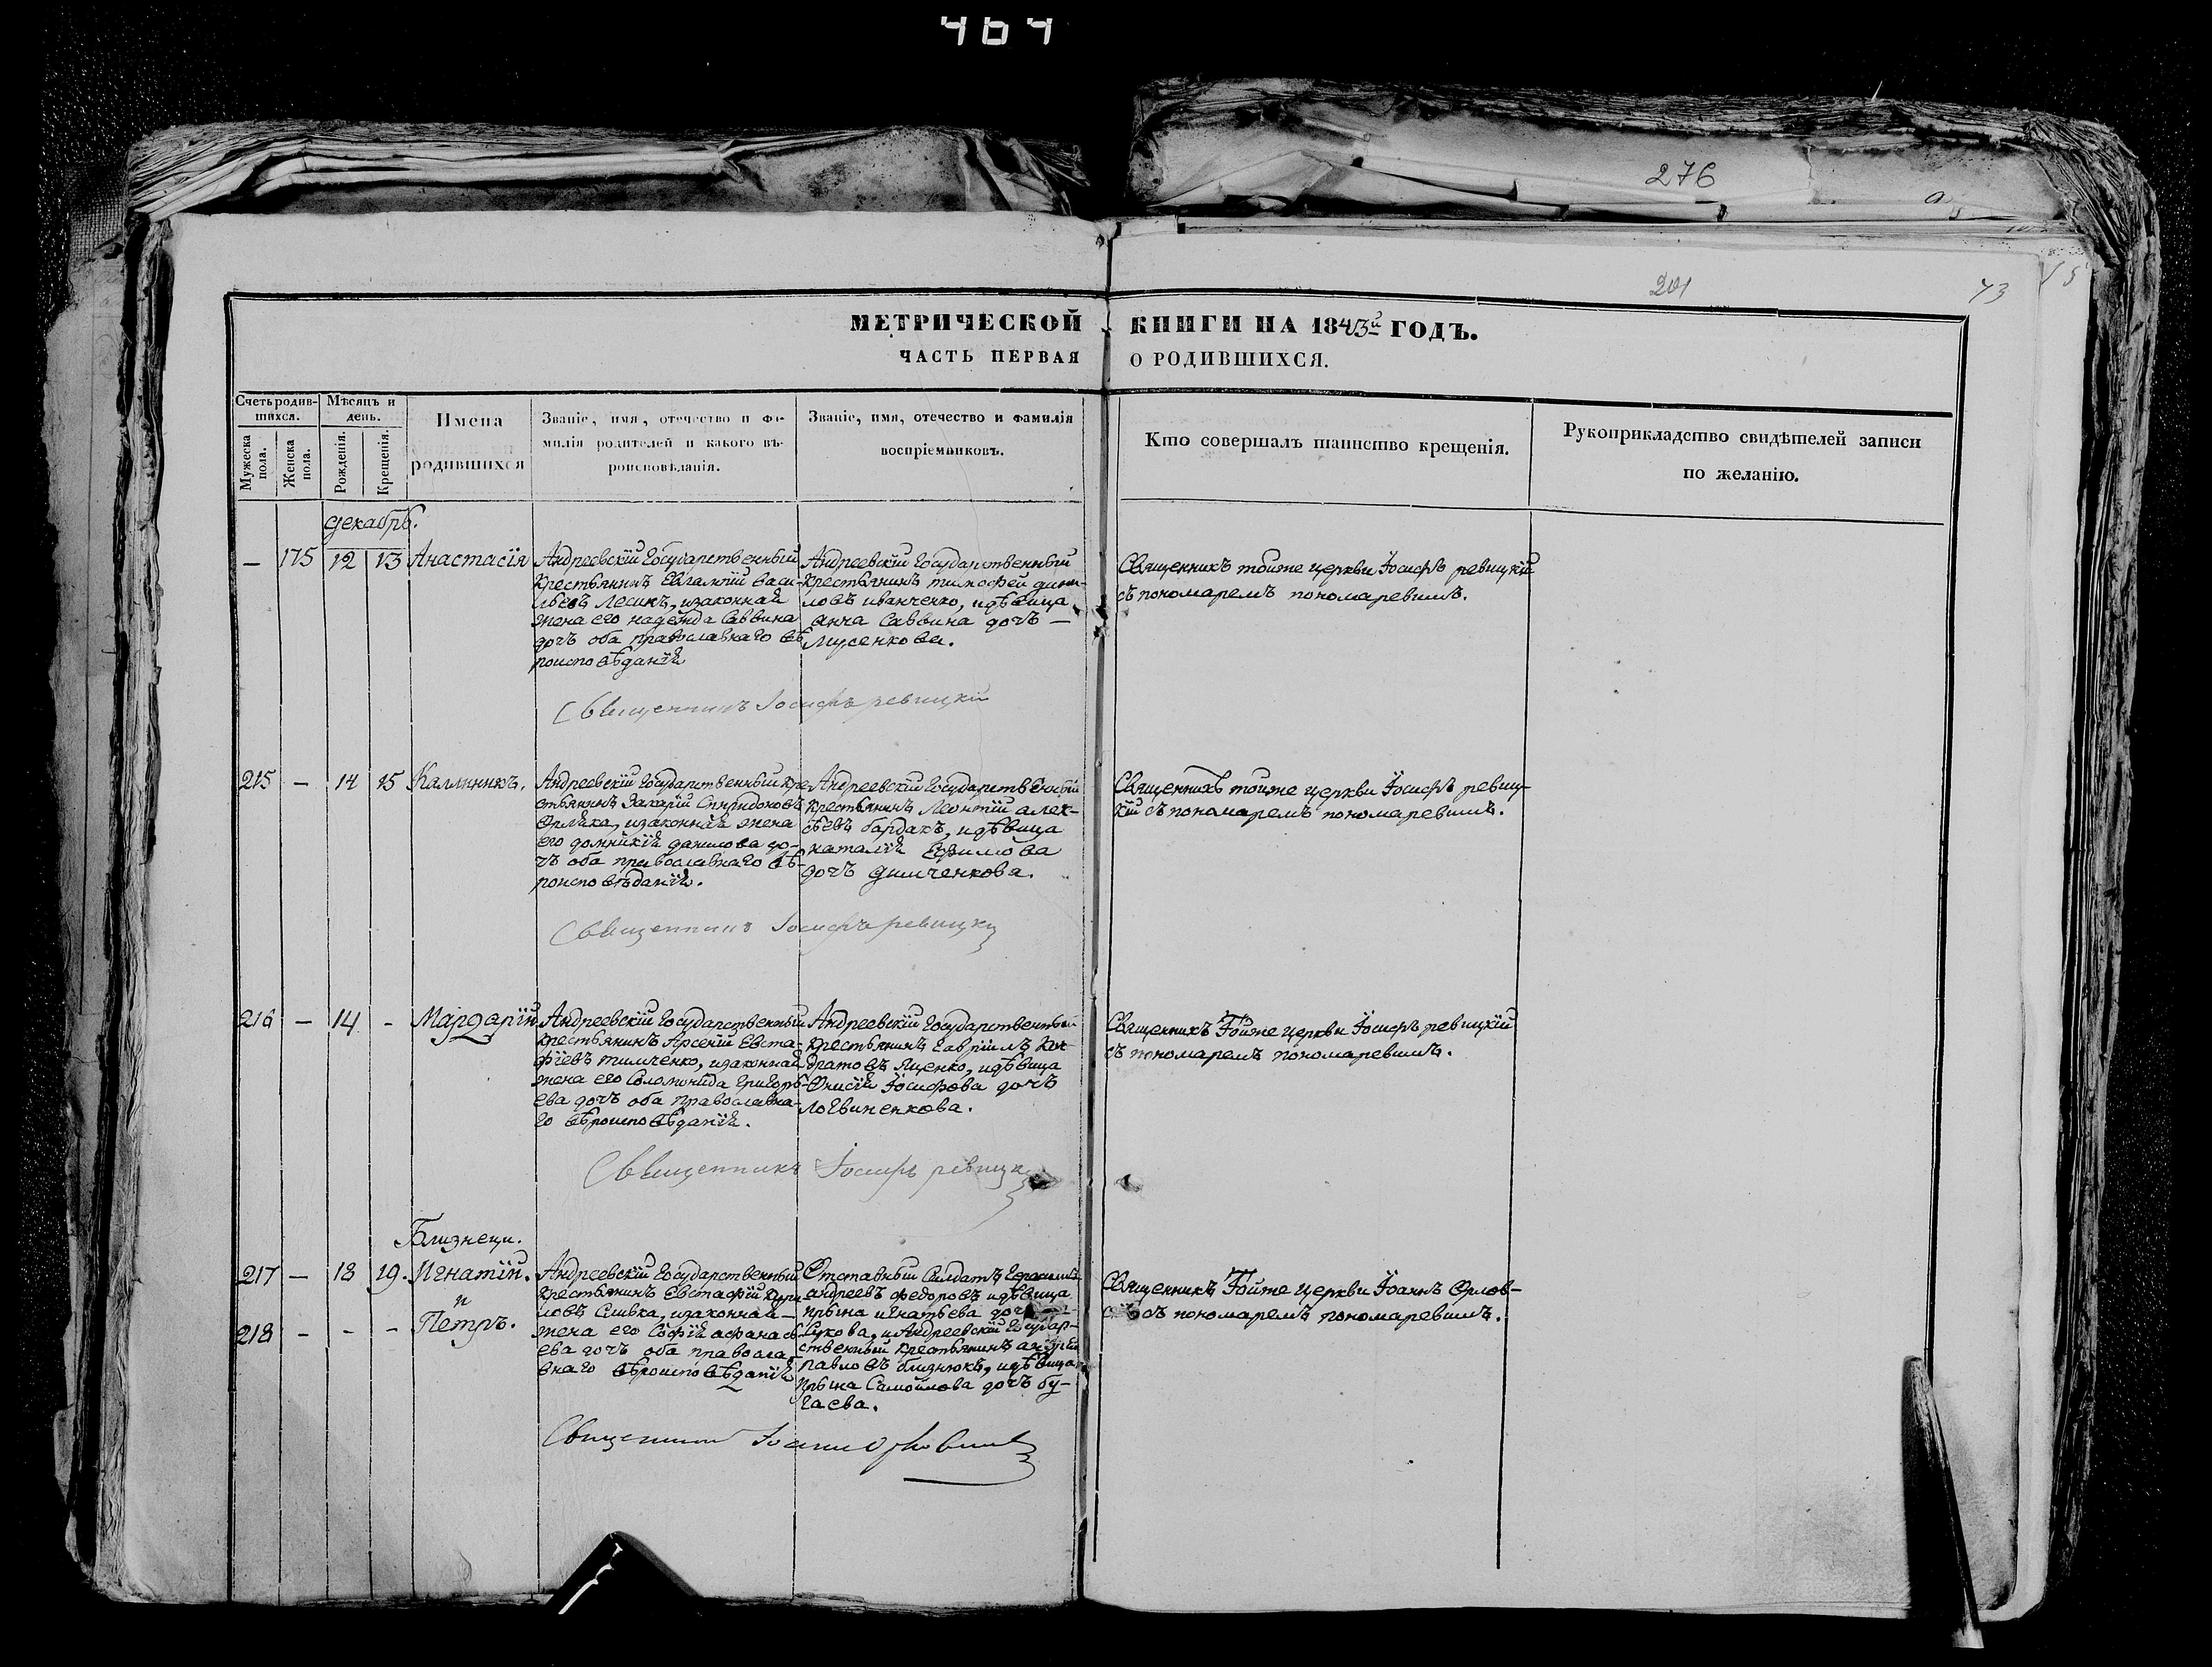 464
276
201
43
МЕТРИЧЕСКОЙ КНИГИ НА 1843й ГОДЪ.
ЧАСТЬ ПЕРВАЯ О РОДИВШИХСЯ.
Счетъ родившихся.
Мужеска пола.
Женска пола.
Мѣсяцъ и день.
Рожденія.
Крещенія.
Имена родившихся
Званіе, имя, отечество и фамилія родителей и какого вѣроисповѣданія.
Званіе, имя, отечество и фамилія воспріемниковъ.
Кто совершалъ таинство крещенія.
Рукоприкладство свидѣтелей записи по желанію.
Декабрь.
— 175 12 13 Анастасія
Андреевскій Государственный
крестьянинъ Евлампій Васи-
льевъ Лесикъ, изаконная
жена его надежда Саввина
дочь оба православнаго вѣ
роисповѣданія
Андреевскій Государственный
крестьянинъ тимофей дани-
ловъ иванченко, идѣвица
анна Саввина дочь —
Мусенкова.
Священникъ тойже церкви Іосифъ ревицкій
съ пономаремъ пономаревымъ.
Священникъ Іосифъ ревицкій
215 — 14 15 Каллиникъ.
Андреевскій Государственный кре-
стьянинъ Захарій Спиридоновъ
Орляка, изаконная жена
его домникія данилова до-
чь оба православнаго вѣ-
роисповѣданія.
Андреевскій Государственный
крестьянинъ Леонтій алек-
ѣевъ бардакъ, идѣвица
наталія Ефимова
дочь Димченкова.
Священникъ тойже церкви Іосифъ ревиц-
кій съ пономаремъ пономаревымъ.
Священникъ Іосифъ ревицкій
216 — 14 - Мардарій
Андреевскій Государственный
крестьянинъ Арсеній Евста-
фіевъ тимченко, изаконная
жена его Соломонида григорь-
ева дочь оба православна-
го вѣроисповѣданія.
Андреевскій Государственный
крестьянинъ Гавріилъ Кон-
дратовъ Яценко, идѣвица
Онисія Іосифова дочь
логвиненкова.
Священникъ Тойже церкви Іосифъ ревицкій
съ пономаремъ пономаревымъ.
Священникъ Іосифъ ревицкій
Близнецы.
217 — 18 19. Игнатій.
и
218 - - - Петръ.
Андреевскій Государственный
крестьянинъ Евстафій Кури
ловъ Сливка, изаконная —
жена его Софія афанась
ева дочь оба правосла-
внаго вѣроисповѣданія
Отставный Солдатъ Герасимъ
андреевъ федоровъ идѣвица
Ирына игнатьева дочь
Сукова, и Андреевскій Государ-
ственный крестьянинъ андрей
павловъ близнюкъ, идѣвица
Ирына Самойлова дочь бу-
гаева.
Священникъ Тойже церкви Іоаннъ Орлов-
съ пономаремъ пономаревымъ.
Священникъ Іоаннъ Орловский